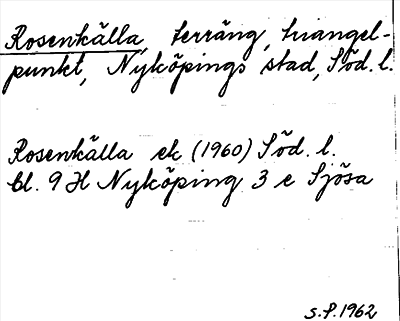 Rosenkälla, terräng, triangel-
punkt, Nyköpings stad, Söd. l.
Rosenkälla ek (1960) Söd. l.
bl. 9 H Nyköping 3 e Sjösa
S.P. 1962